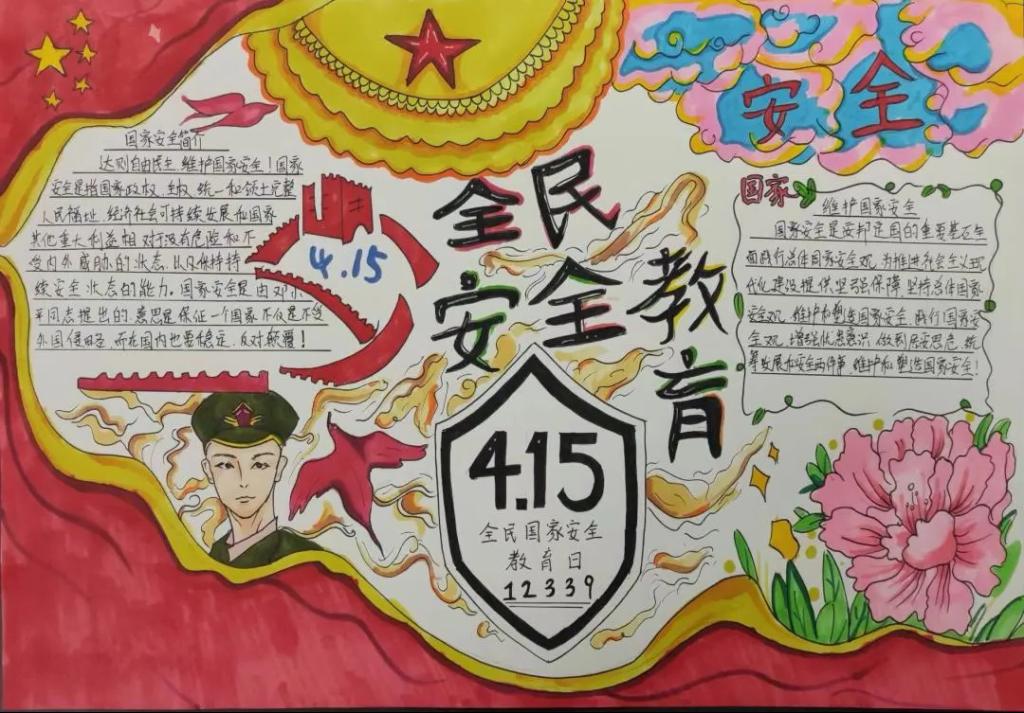 安全
国家安全简介
达则自由民主,维护国家安全!国家
安全是指国家政权、主权、统一和领土完整
人民福祉、经济社会可持续发展和国家
其他重大利益相对于没有危险和不
受内外威胁的状态,以及保持持
续安全状态的能力。国家安全是由邓小
平同志提出的,意思是保证一个国家不仅是不受
外国侵略,而在国内也要稳定,反对颠覆!
4.15
全民
安全教育
4.15
全民国家安全
教育日
12339
国家
维护国家安全
国家安全是安邦定国的重要基石全
面践行总体国家安全观,为推进社会主义现
代化建设提供坚强保障,坚持总体国家
安全观,维护和塑造国家安全,践行国家安
全观,增强忧患意识,做到居安思危,统
筹发展和安全两件事,维护和塑造国家安全!